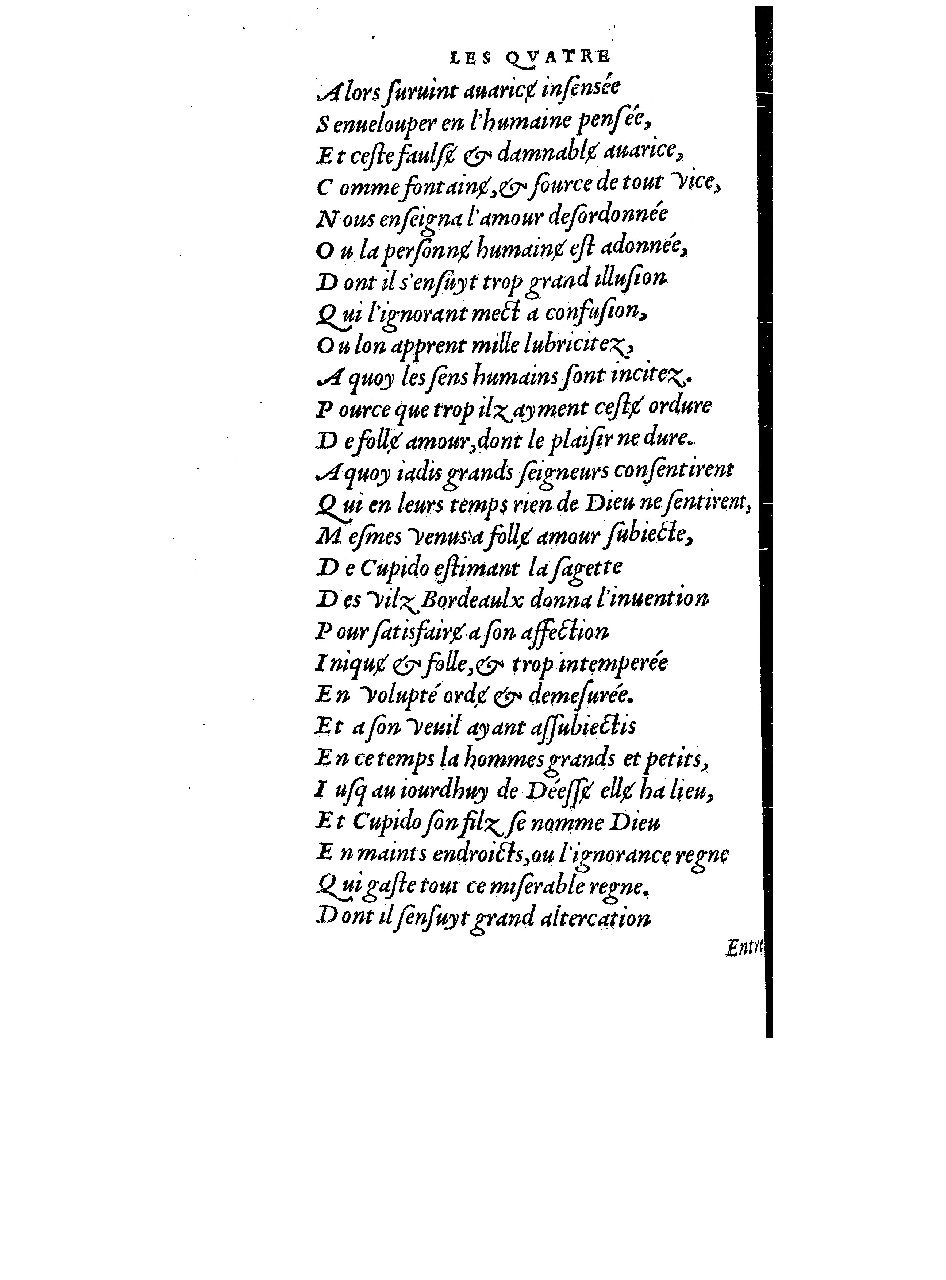 LES QVATRE
Alors ſuruint auaricɇ inſensée
Senuelouper en l'humaine penſée,
Et ceſte faulſɇ & damnablɇ auarice,
Comme fontainɇ,& ſource de tout vice,
Nous enſeigna l'amour deſordonnée
Ou la perſonnɇ humainɇ eſt adonnée,
Dont il s'enſuyt trop grand illuſion
Qui l'ignorant mect a confuſion,
Ou lon apprent mille lubricitez,
A quoy les ſens humains ſont incitez.
Pource que trop ilz ayment ceſtɇ ordure
De follɇ amour,dont le plaiſir ne dure.
A quoy iadis grands ſeigneurs conſentirent
Qui en leurs temps rien de Dieu ne ſentirent,
Meſmes Venus a follɇ amour ſubiecte,
De Cupido eſtimant la ſagette
Des vilz Bordeaulx donna l'inuention
Pour ſatisfairɇ a ſon affection
Iniquɇ & folle,& trop intemperée
En volupté ordɇ & demeſurée.
Et a ſon veuil ayant aſſubiectis
En ce temps la hommes grands et petits,
Iuſqu au iourdhuy de Déeſſɇ ellɇ ha lieu,
Et Cupido ſon filz ſe nomme Dieu
En maints endroicts,ou l'ignorance regne
Qui gaſte tout ce miſerable regne.
Dont il ſenſuyt grand altercation
Entr